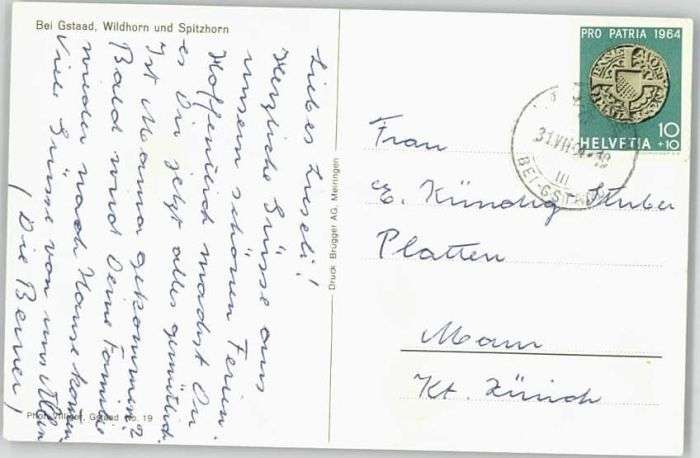 Bei Gstaad, Wildhorn und Spitzhorn
Liebes Luseli!
Herzliche Grüsse aus
unsern schönen Ferien.
Hoffentlich machst Du
es Dir jetzt alles gemütlich.
Ist Mama gekommen?
Bald wird Deine Familie
wieder nach Hause kommen.
Viele Grüsse von uns Allen
(Die Berner)
Photo Villiger, Gstaad No. 19
Druck Brügger AG. Meiringen
PRO PATRIA 1964
10
+10
HELVETIA
31.VII.64-19
III
BEI-GSTAAD
Frau
E. Kündig-Stuber
Platten
Mann
Kt. Zürich